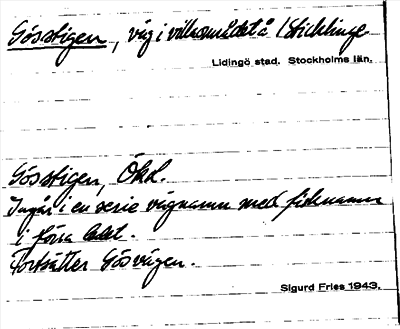 Gösstigen, väg i villaområdet å Stichlinge
Lidingö stad. Stockholms län.
Gösstigen, Ökd.
Ingår i en serie vägnamn med fisknamn
i förra ledet.
Fortsätter Gösvägen.
Sigurd Fries 1943.